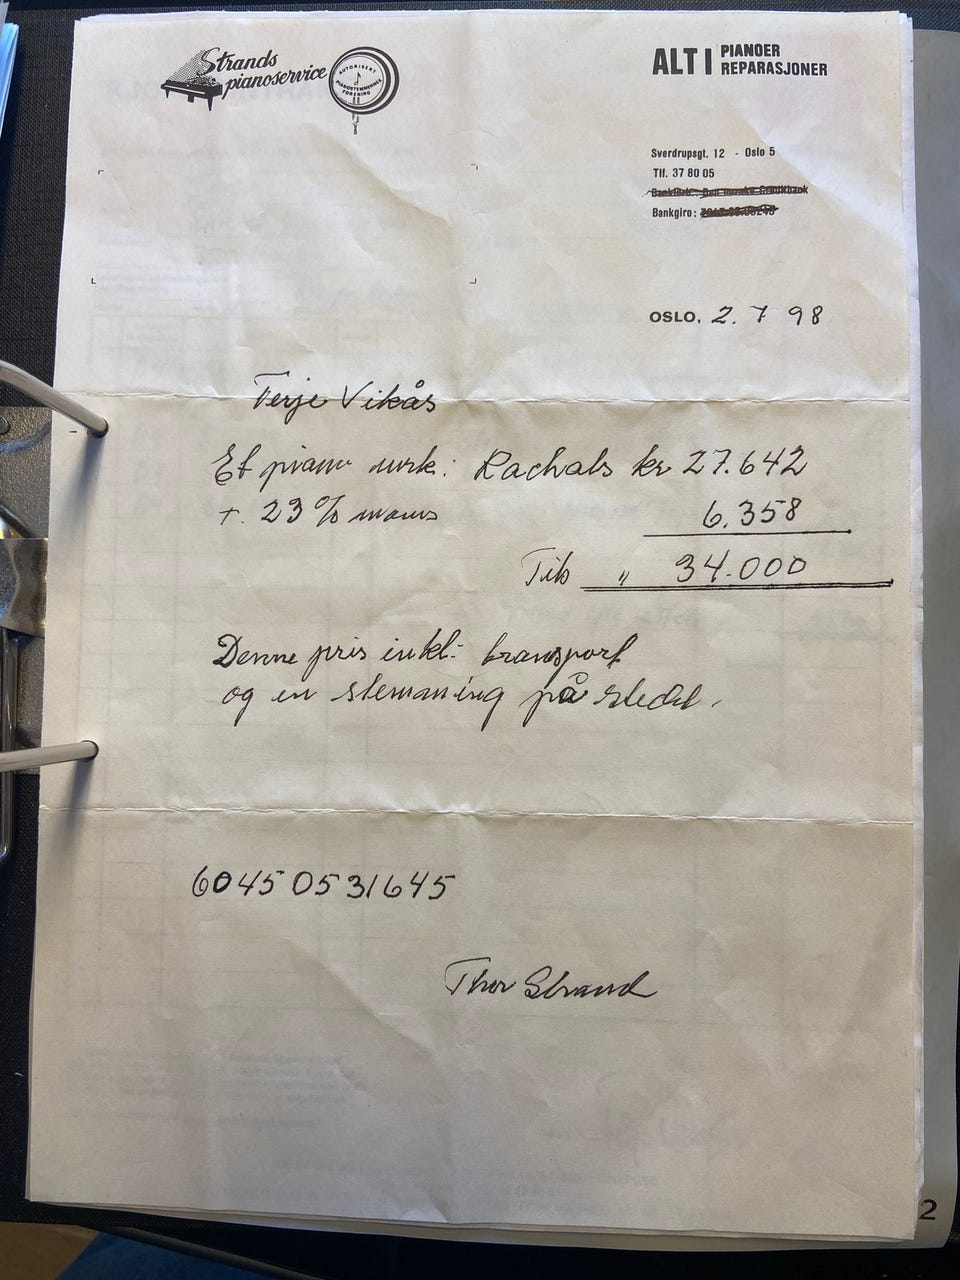 Strands
pianoservice
AUTORISERT
PIANOSTEMMERNES
FORENING
ALT I PIANOER
REPARASJONER
Sverdrupsgt. 12 - Oslo 5
Tlf. 37 80 05
Bankgiro:
OSLO, 2. 7 98
Terje Vikås
Et piano mrk: Rachals kr 27.642
+ 23 % moms 6.358
Tils " 34.000
Denne pris inkl: transport
og en stemming på stedet.
6045 05 31645
Thor Strand
2